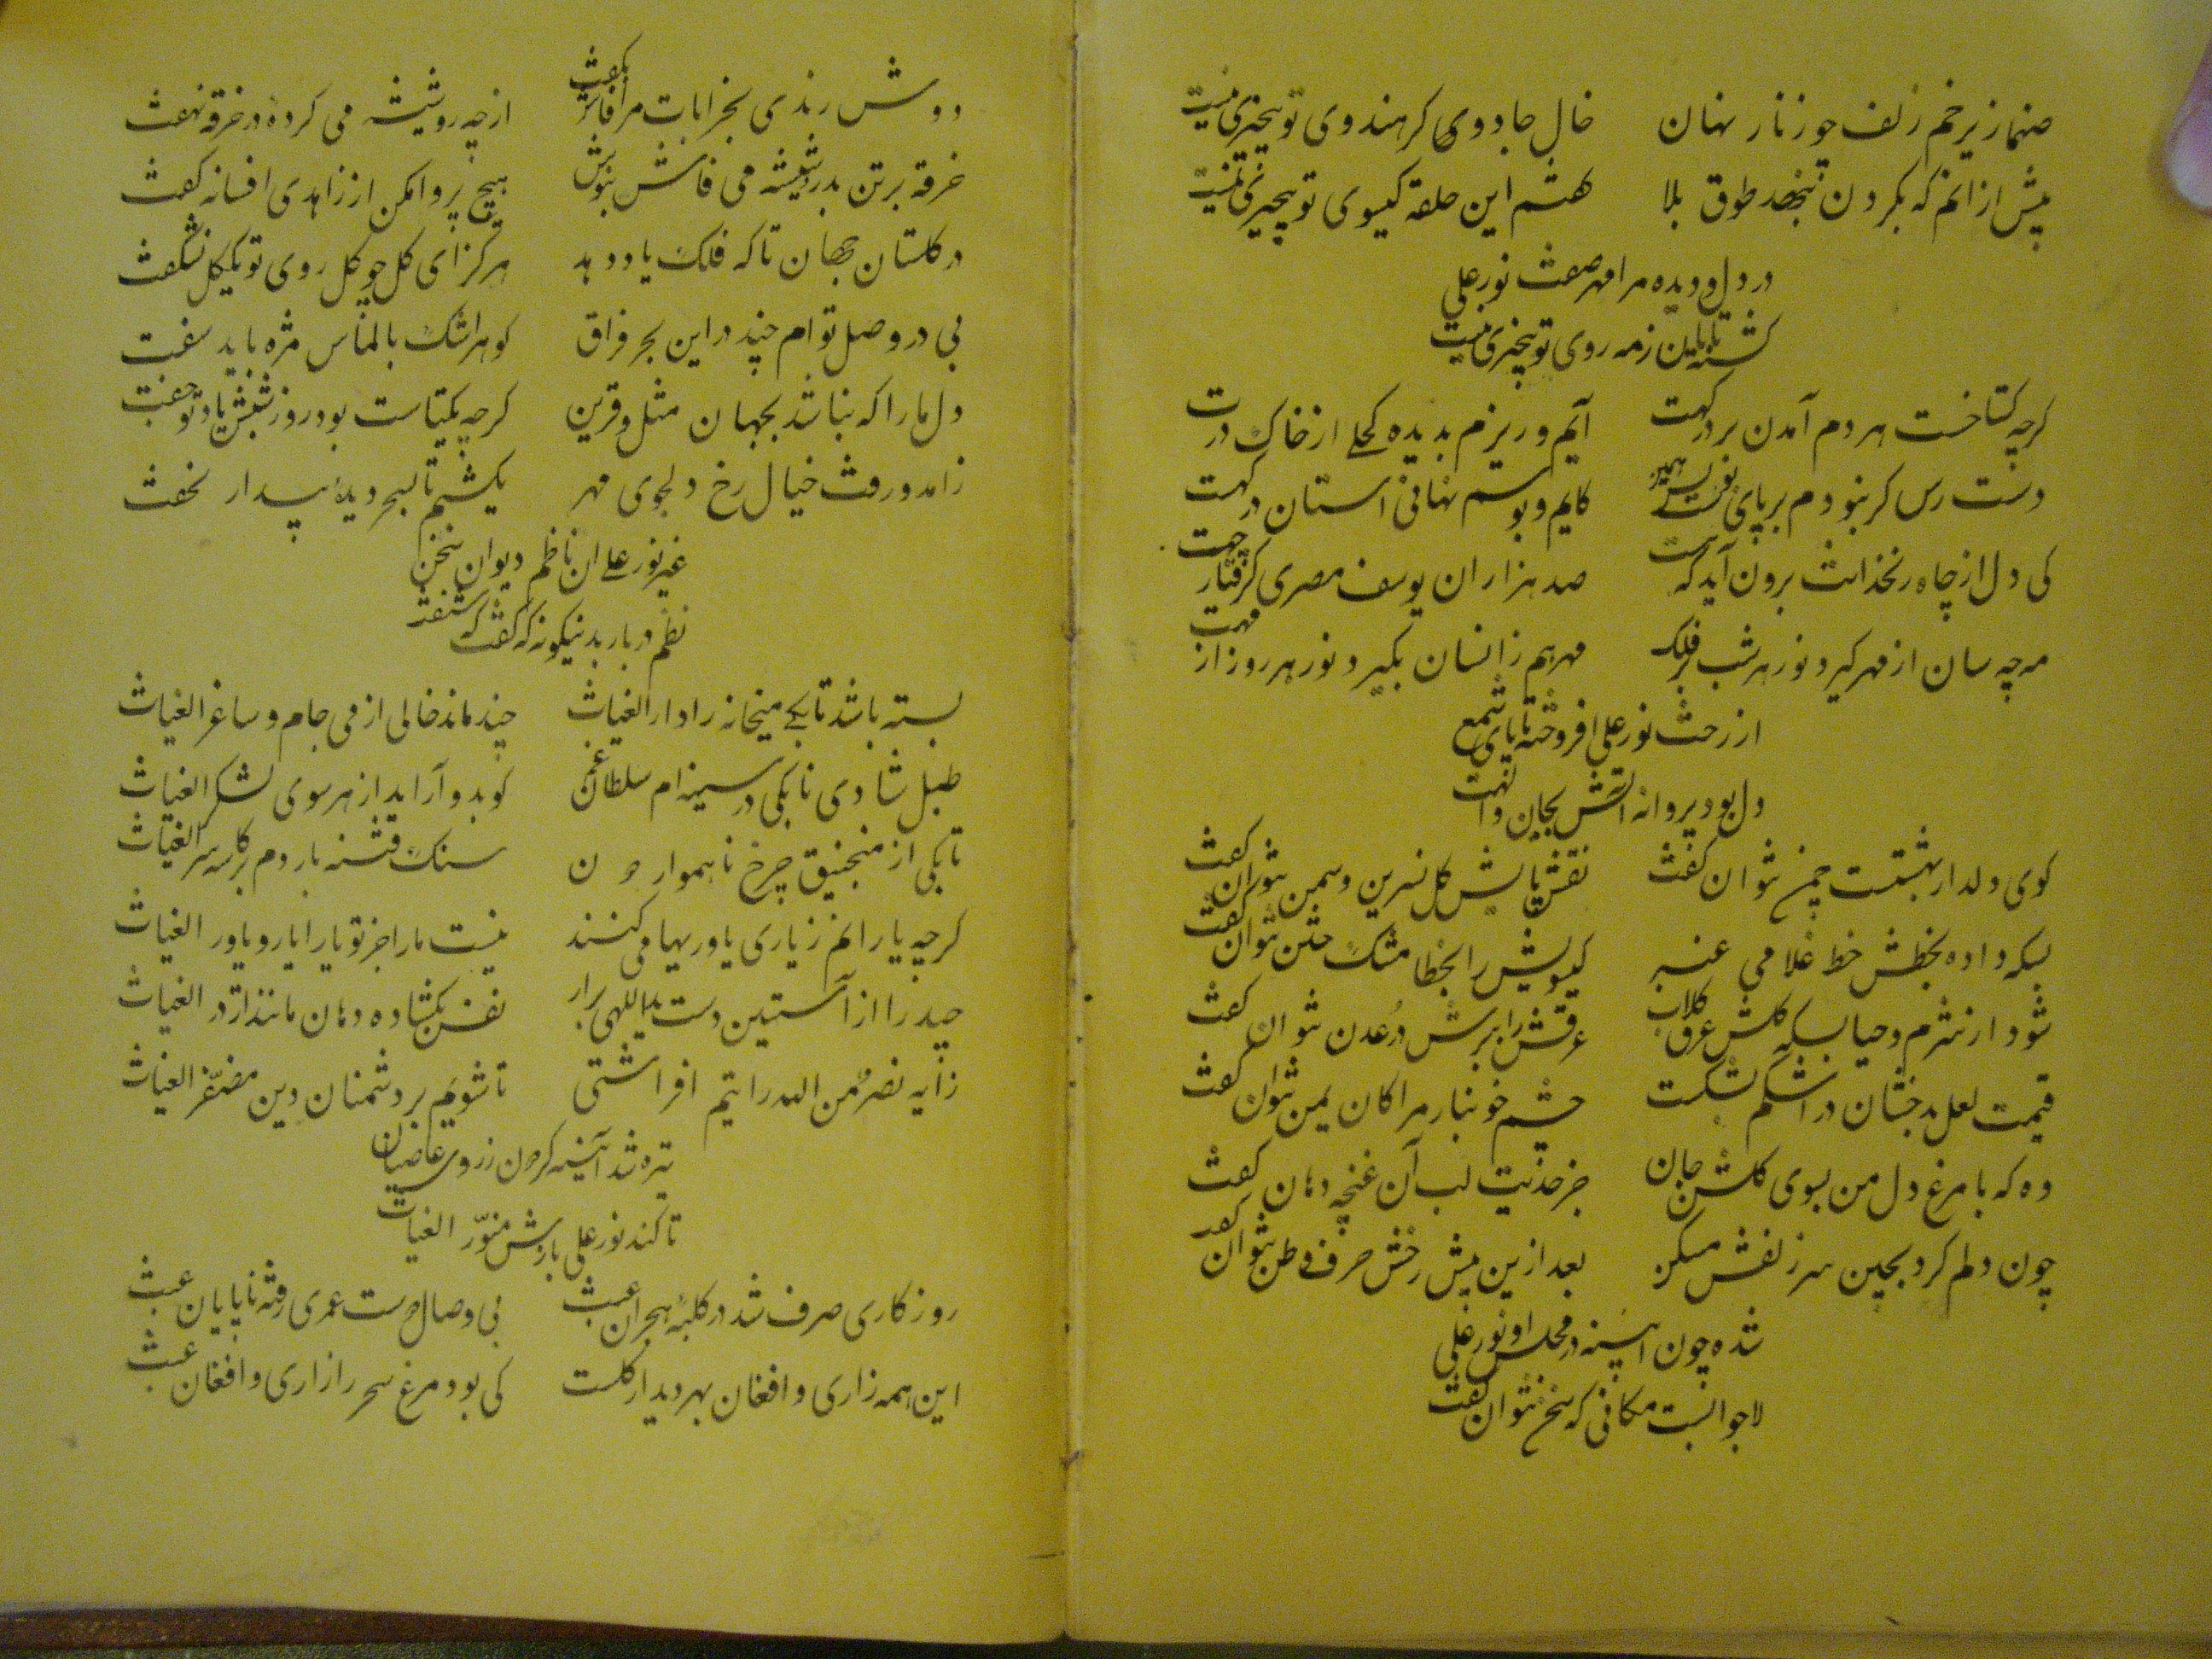 صنما زیر خم زلف چو زنار نهان خال جادوی کر هندوی تو بیچیزی نیست
پیش از انم که بکردن بنهد طوق بلا کفتم این حلقه کیسوی تو بیچیزی نیست
در دل و دیده مرا مهر صفت نور علی
کشته تابان زمه روی تو بیچیزی نیست
کرچه کستاخست هر دم آمدن بر درکهت آیم و ریزم بدیده کحلی از خاک درت
دست رس کر نبودم بر پای کایم و بوسم نهانی استان درکهت
کی دل از چاه زنخدانت برون آید که صد هزاران یوسف مصری کرفتار چهت
مه چه سان از مهر کیرد نور هر شب بر فلک مهر هم زانسان بکیرد نور هر روز از مهت
از رخت نور علی افروخته تا پای شمع
دل بود پروانه اتش بجان والهت
کوی دلدار بهشتست چمن نتوان کفت نقش پایش کل نسرین و سمن نتوان کفت
بسکه داده بخطش خط غلامی عنبر کیسویش را بخطا مشک ختن نتوان کفت
شود از شرم و حیا بسکه کلش عرق کلاب عرقش را برش در عدن نتوان کفت
قیمت لعل بدخشان در اشکم بشکست چشم خونبار مرا کان یمن نتوان کفت
وه که با مرغ دل من بسوی کلشن جان جز حدیث لب آن غنچه دهان کفت
چون دلم کرد بچین سر زلفش مسکن بعد ازین پیش رخش حرف وطن نتوان کفت
شده چون اینه در مجلس او نور علی
لاجوابست مکانی که سخن نتوان کفت
دوش رندی بخرابات مرا فاش بکفت از چه رو شیشه می کردهٔ در خرقه نهفت
خرقه بر تن بدر و شیشه می فاش بنوش هیچ پروا مکن از زاهدی افسانه کفت
در کلستان جهان تا که فلک یاد دهد هرکز ای کل چو کل روی تو یک کل نشکفت
بی در وصل توام چند در این بحر فراق کوهر اشک بالماس مژه باید سفت
دل ما را که نباشد بجهان مثل و قرین کرچه یکتاست بود روز و شبش یاد تو جفت
زامد و رفت خیال رخ دلجوی مهر یکشبم تا بسحر دیدهٔ بیدار نخفت
غیر نور علی ان ناظم دیوان سخن
نظم دربار بدینکونه که کفت که شنفت
بسته باشد تا بکی میخانه را دار الغیاث چند ماند خالی از می جام و ساغر الغیاث
طبل شادی تا بکی در سینه ام سلطان غم کوبد و آراید از هر سوی لشکر الغیاث
تا بکی از منجنیق چرخ ناهموار دون سنک فتنه باردم بر کاسه سر الغیاث
کرچه یارانم زیاری یاوریها می کنند نیست ما را جز تو یارا یار و یاور الغیاث
حیدرا از آستین دست یداللهی برار نفس بکشاده دهان مانند اژدر الغیاث
زایه نصر من الله رایتم افراشتی تا شویم بر دشمنان دین مضفر الغیاث
تیره شد آئینه کردون زروی عاصیان
تا کند نور علی بازش منور الغیاث
روزکاری صرف شد در کلبهٔ هجران عبث بی وصال دوست عمری رفته تا پایان عبث
این همه زاری و افغان بهر دیدار کلست کی بود مرغ سحر را زاری و افغان عبث